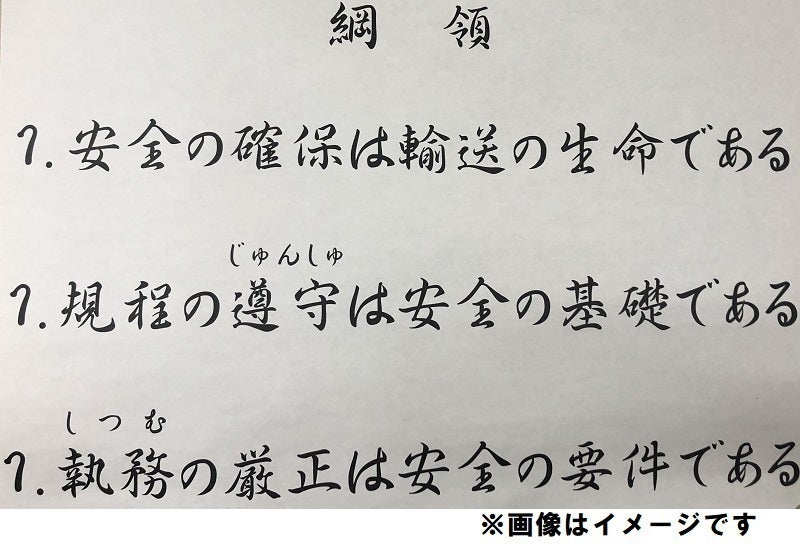 綱 領
1.安全の確保は輸送の生命である
じゅんしゅ
1.規程の遵守は安全の基礎である
しつむ
1.執務の厳正は安全の要件である
※画像はイメージです